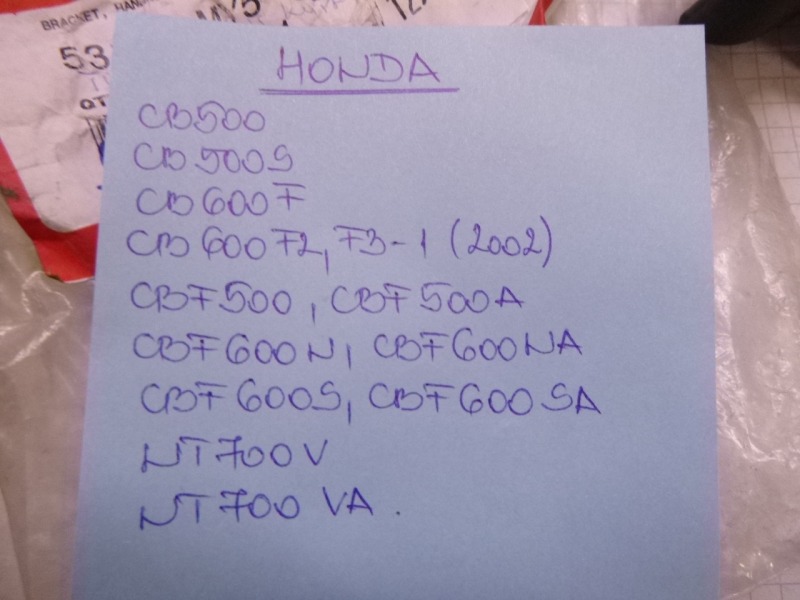 BRACKET, HAN
53
QT
HONDA
CB500
CB500S
CB600F
CB600F2, F3-1 (2002)
CBF500, CBF500A
CBF600N, CBF600NA
CBF600S, CBF600SA
NT700V
NT700 VA.